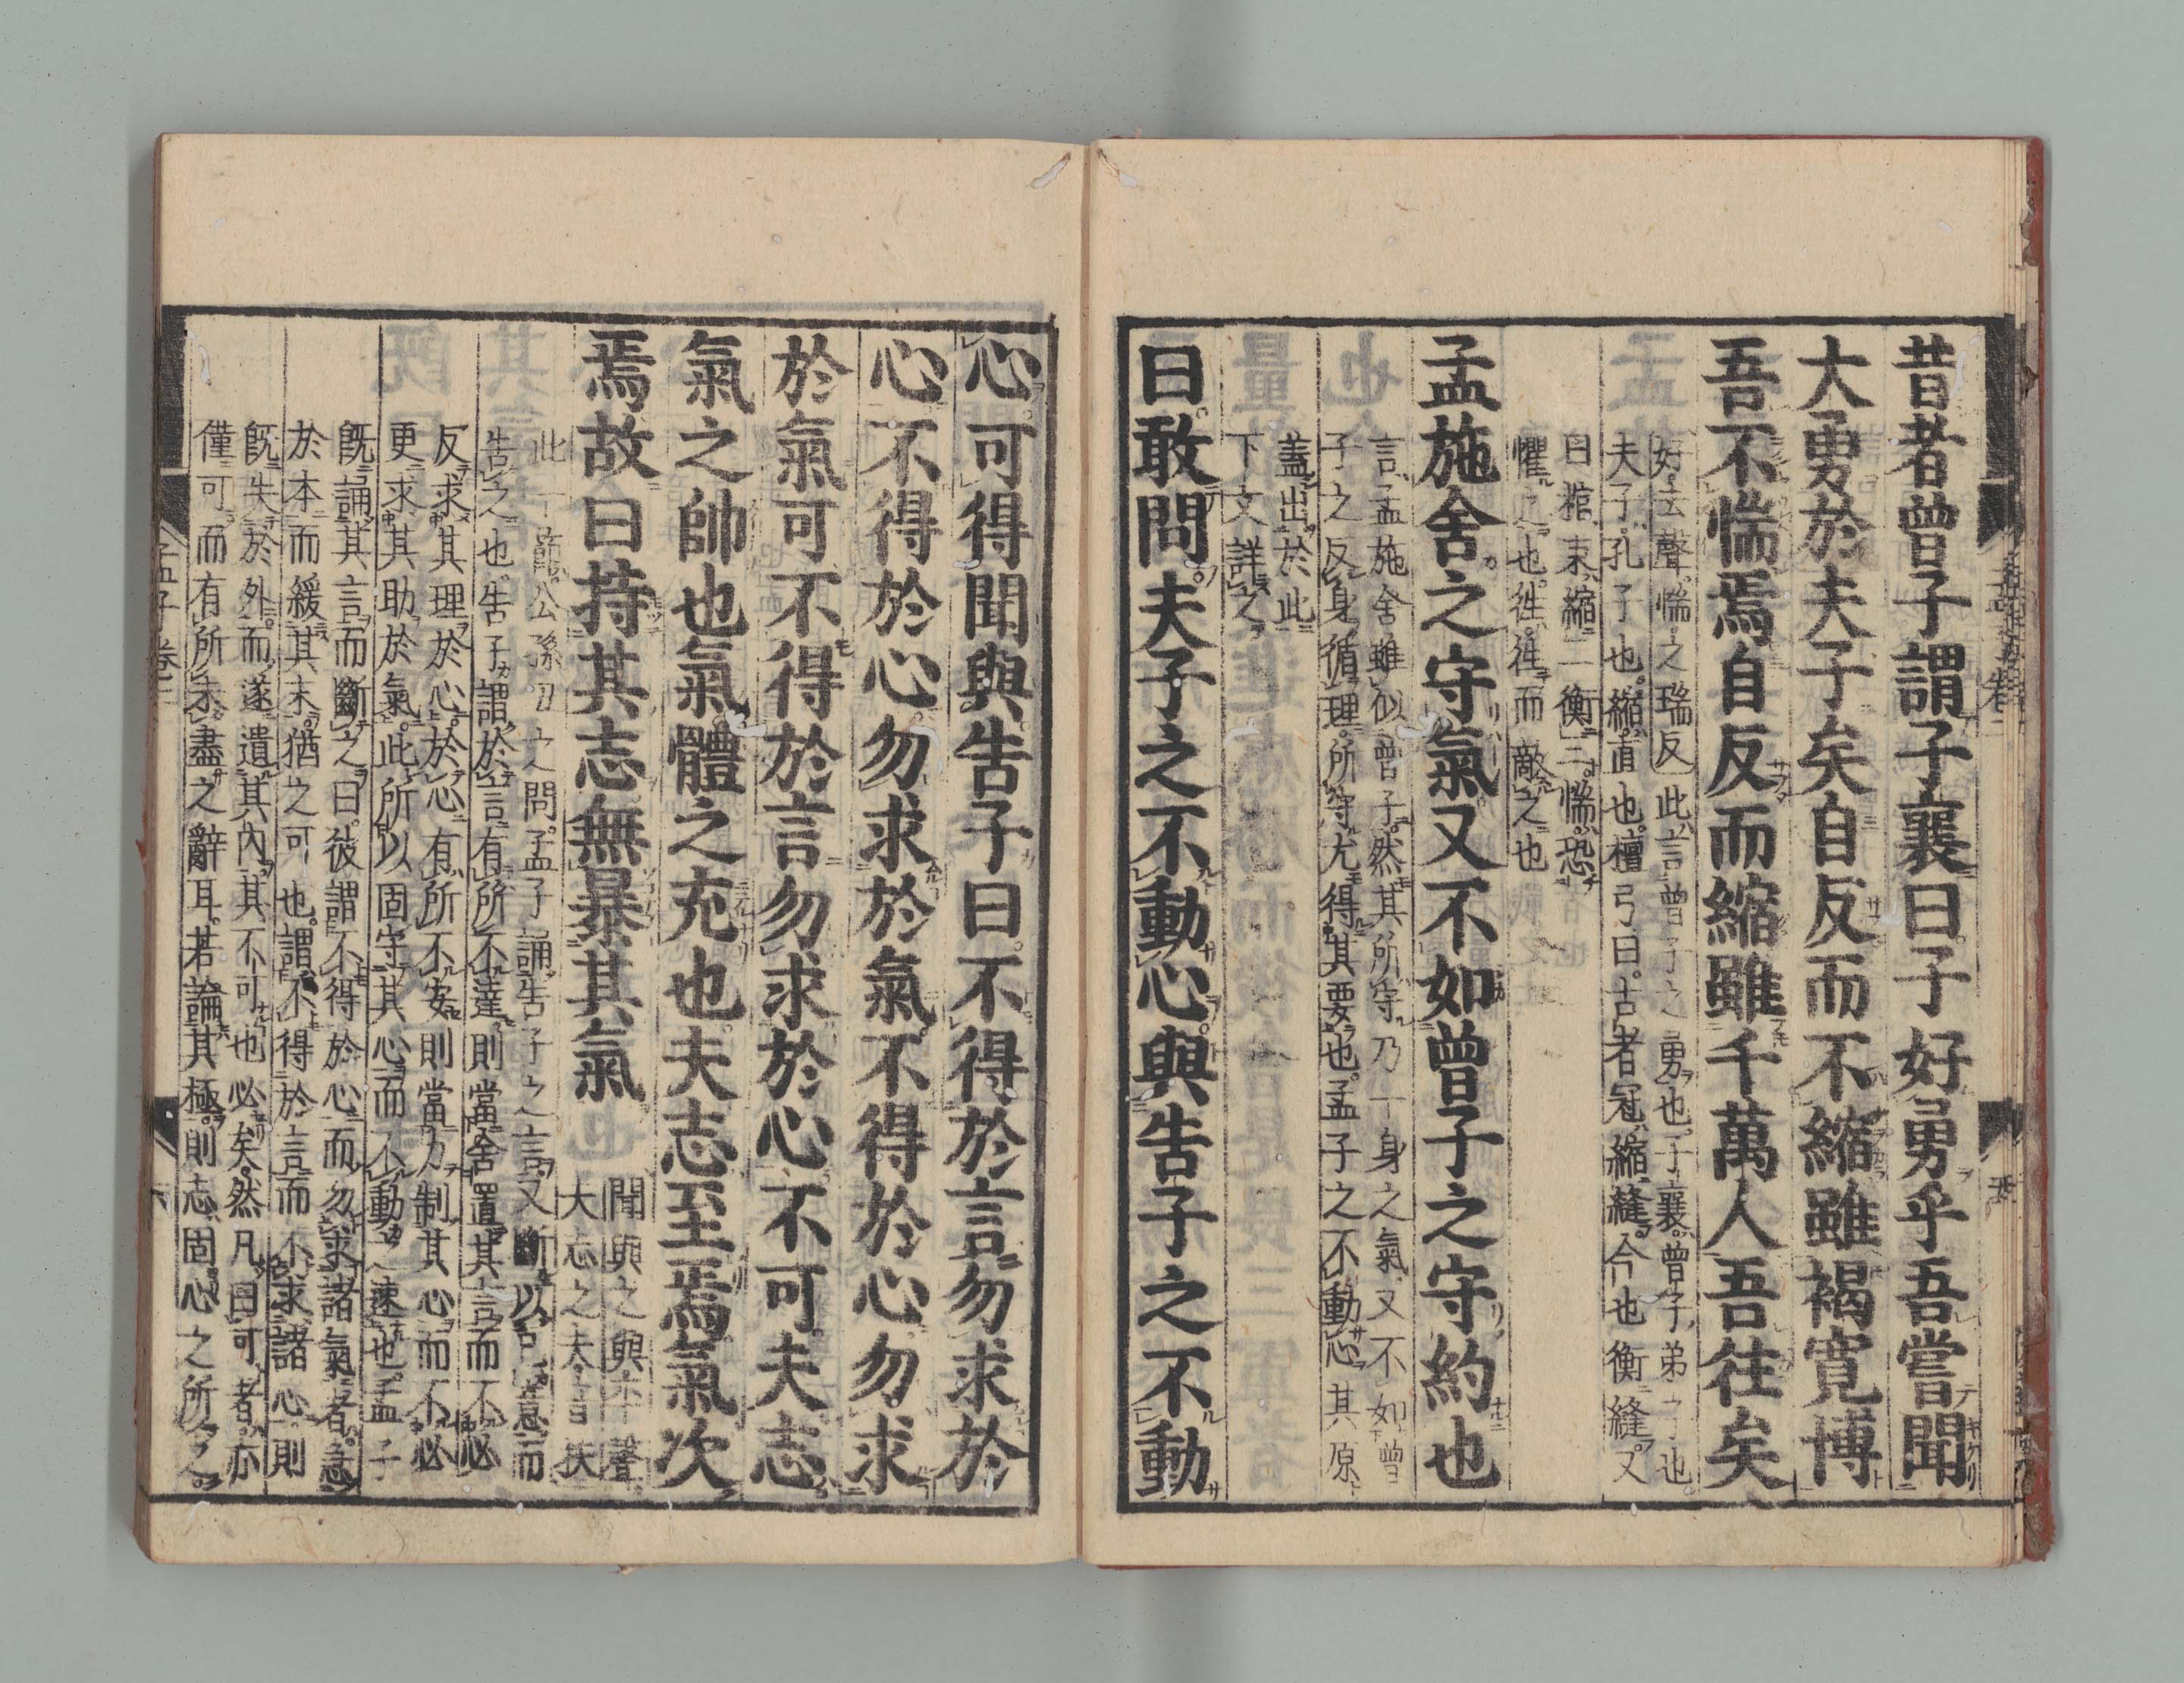 昔者曾子謂子襄曰子好勇乎吾嘗聞
大勇於夫子矣自反而不縮雖褐寛博
吾不惴焉自反而縮雖千萬人吾往矣
好去聲惴之瑞反此言曾子之勇也子襄曾子弟子也
夫子孔子也縮直也檀弓曰古者冠縮縫今也衡縫又
曰棺束縮二衡三惴恐
懼之也徃徃而敵之也
孟施舍之守氣又不如曾子之守約也
言孟施舍雖似曾子然其所守乃一身之氣又不如曾
子之反身循理所守尤得其要也孟子之不動心其原
蓋出於此
下文詳之
曰敢問夫子之不動心與告子之不動
心可得聞與告子曰不得於言勿求於
心不得於心勿求於氣不得於心勿求
於氣可不得於言勿求於心不可夫志
氣之帥也氣體之充也夫志至焉氣次
焉故曰持其志無暴其氣
聞與之與平聲
夫志之夫音扶
此一節公孫丑之問孟子誦告子之言又斷以己意而
告之也告子謂於言有所不達則當舍置其言而不必
反求其理於心於心有所不安則當力制其心而不必
更求其助於氣此所以固守其心而不動之速也孟子
既誦其言而斷之曰彼謂不得於心而勿求諸氣者急
於本而緩其末猶之可也謂不得於言而不求諸心則
既失於外而遂遺其內其不可也必矣然凡曰可者亦
僅可而有所未盡之辭耳若論其極則志固心之所之
孟子卷二
六